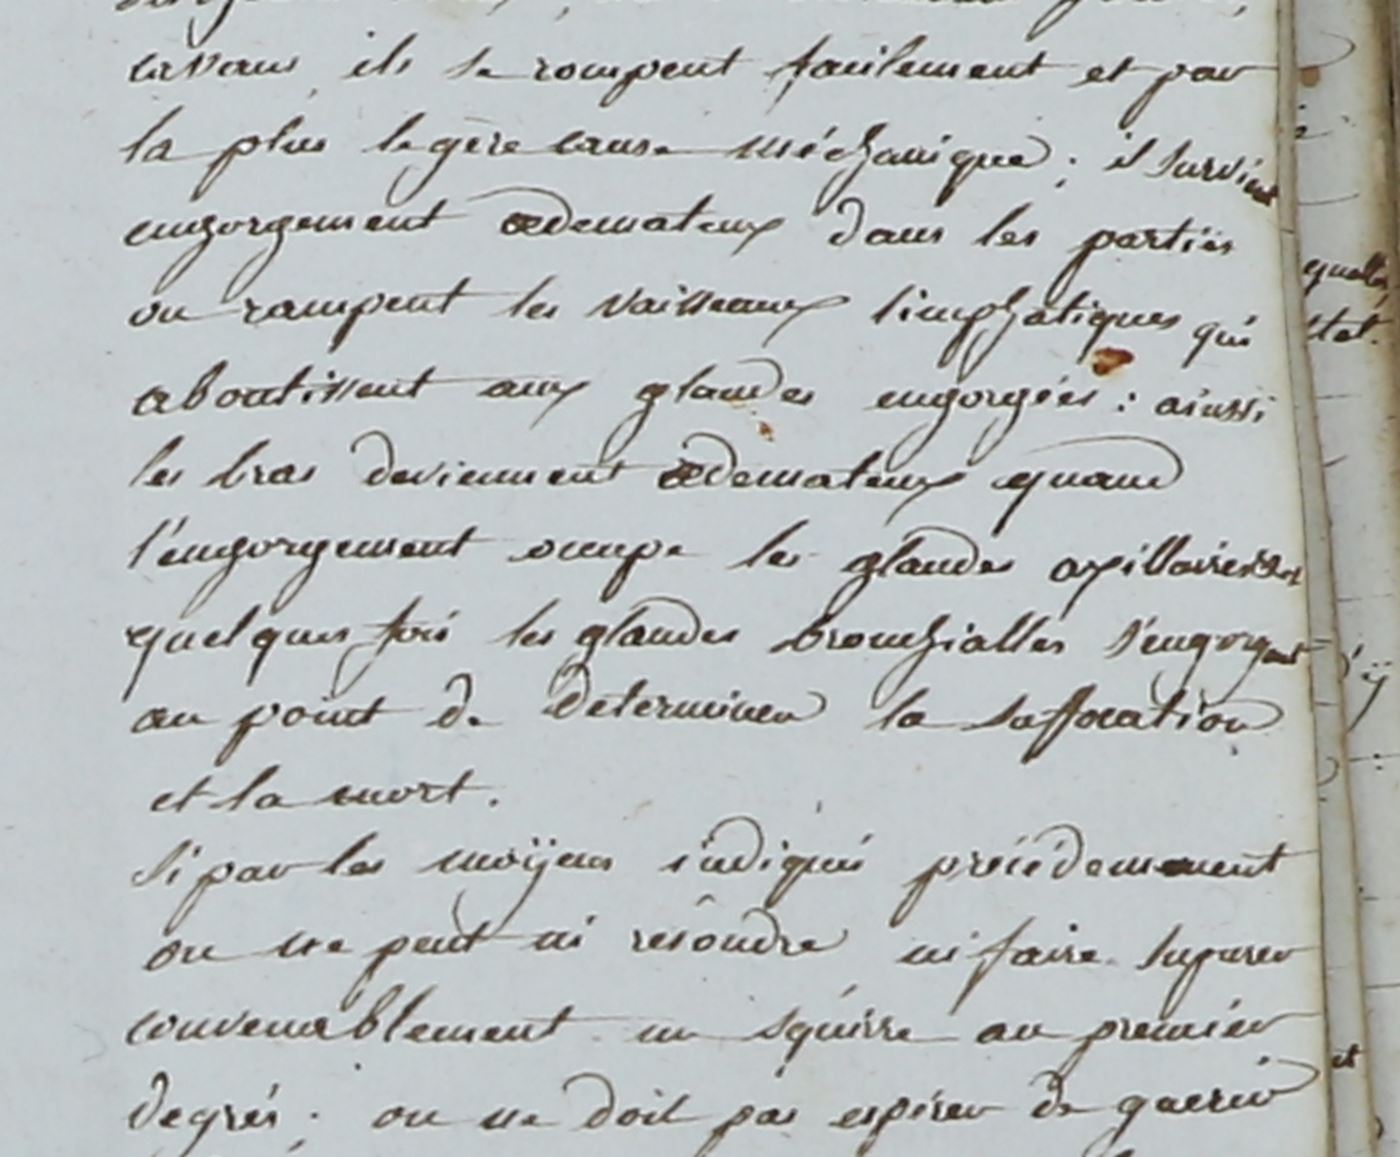 cassans, ils se rompent facilement et par
la plus legere cause méchanique ; il survient
engorgement œdemateux dans les parties
ou rampent les vaisseaux limphatiques qui
aboutissent aux glandes engorgées : ainsi
les bras deviennent œdemateux quand
l'engorgement occupe les glandes axillaires
quelques fois les glandes bronchialles s'engorgent
au point de determiner la suffocation
et la mort.
Si par les moÿens indiqués précédemment
on ne peut ni resôudre ni faire supurer
convenablement un squirre au premier
degrés ; on ne doit pas esperer de guerir